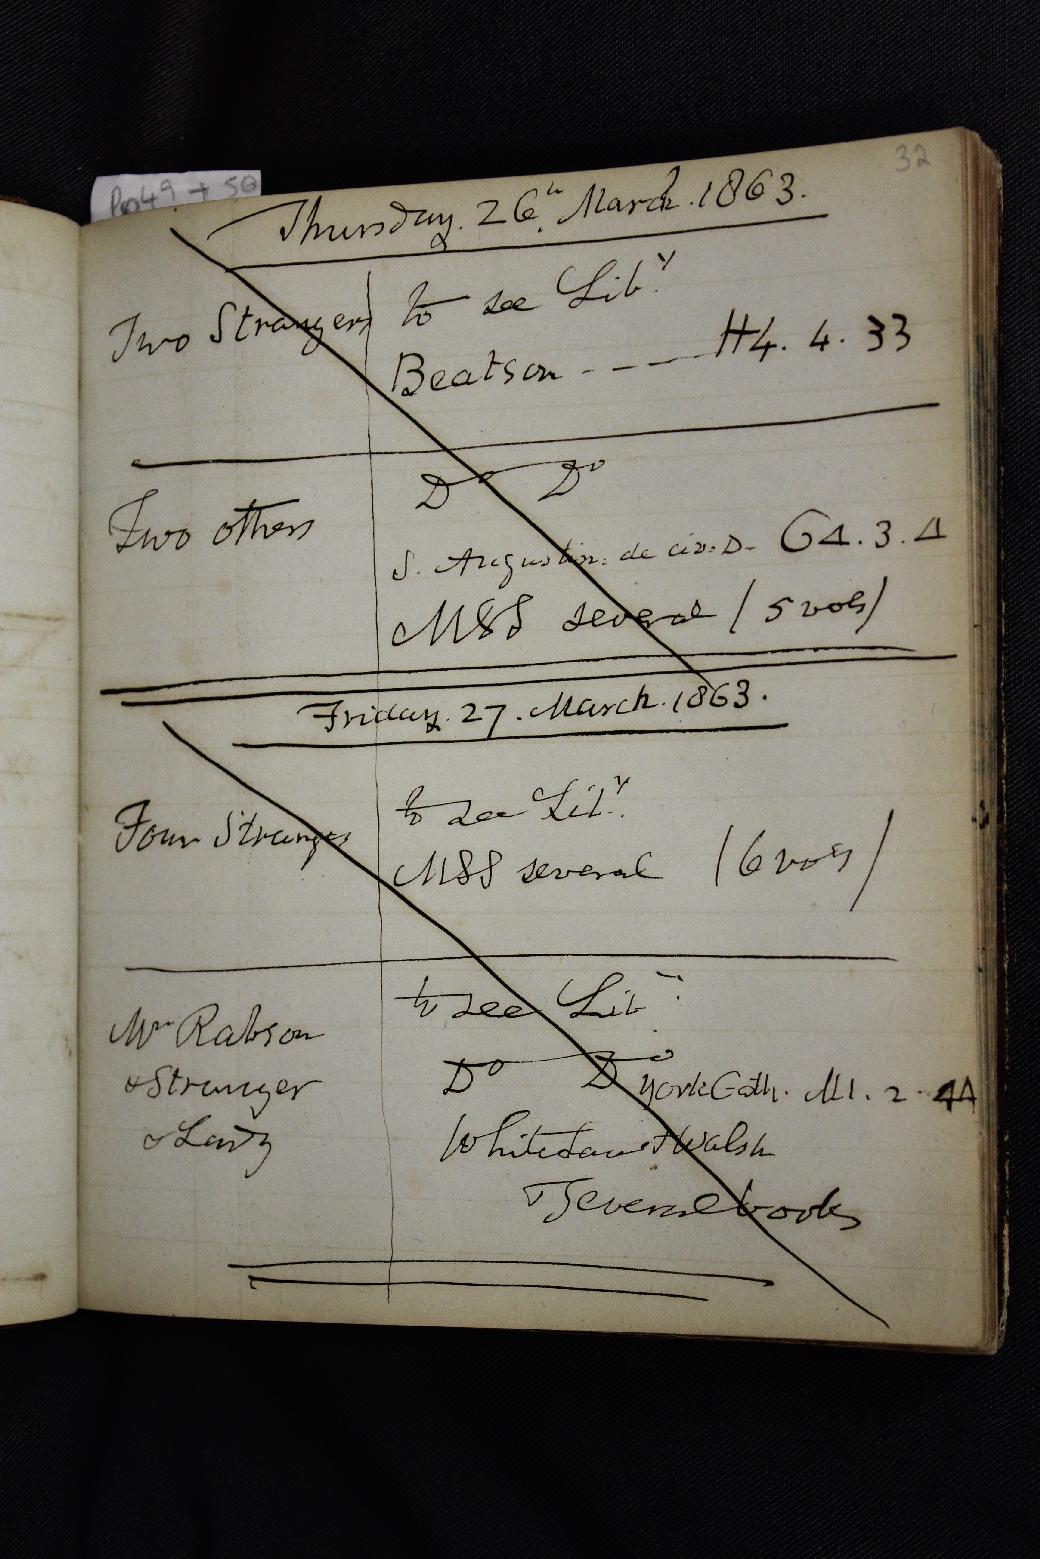 32
Pp 49 + 50
Thursday. 26th March. 1863.
Two Strangers to see Liby
Beatson - - - H4. 4. 33
Two others Do Do
S. Augustin. de civ: D. G4. 3. 4
MSS several (5 vols)
Friday. 27. March. 1863.
Four Strangers to see Liby
MSS several (6 vols)
to see Liby
Mr Rabson
& Stranger Do Do York Cath. M1. 2. 44
& Lady & Walsh
& Several books